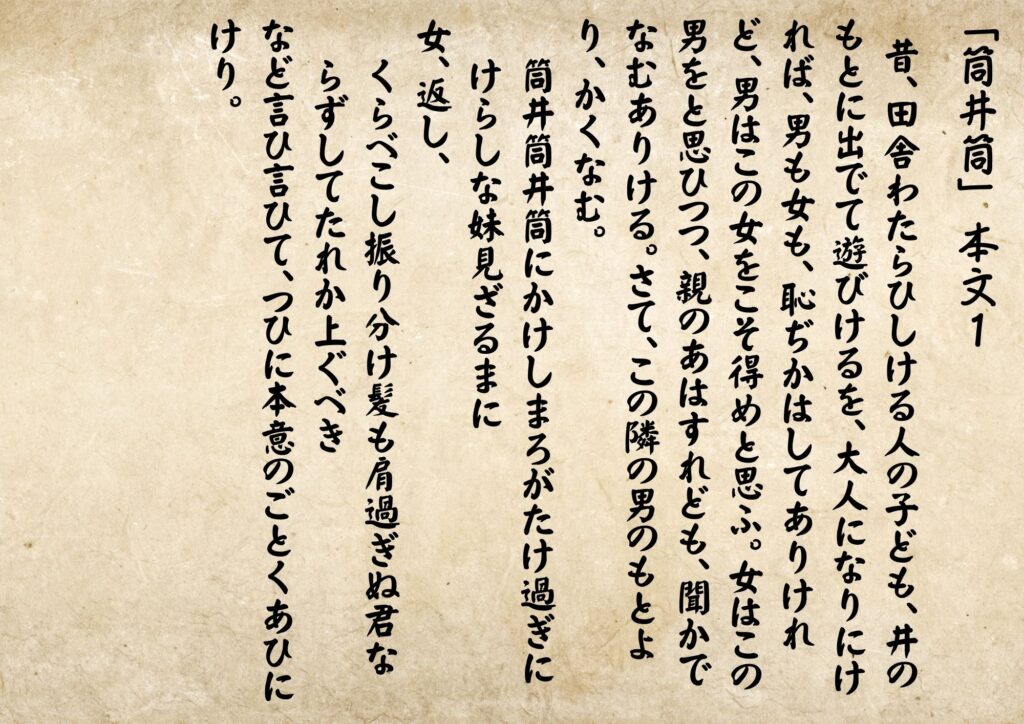 「筒井筒」 本文1
昔、田舎わたらひしける人の子ども、井の
もとに出でて遊びけるを、大人になりにけ
れば、男も女も、恥ぢかはしてありけれ
ど、男はこの女をこそ得めと思ふ。女はこの
男をと思ひつつ、親のあはすれども、聞かで
なむありける。さて、この隣の男のもとよ
り、かくなむ。
筒井筒井筒にかけしまろがたけ過ぎに
けらしな妹見ざるまに
女、返し、
くらべこし振り分け髪も肩過ぎぬ君な
らずしてたれか上ぐべき
など言ひ言ひて、つひに本意のごとくあひに
けり。